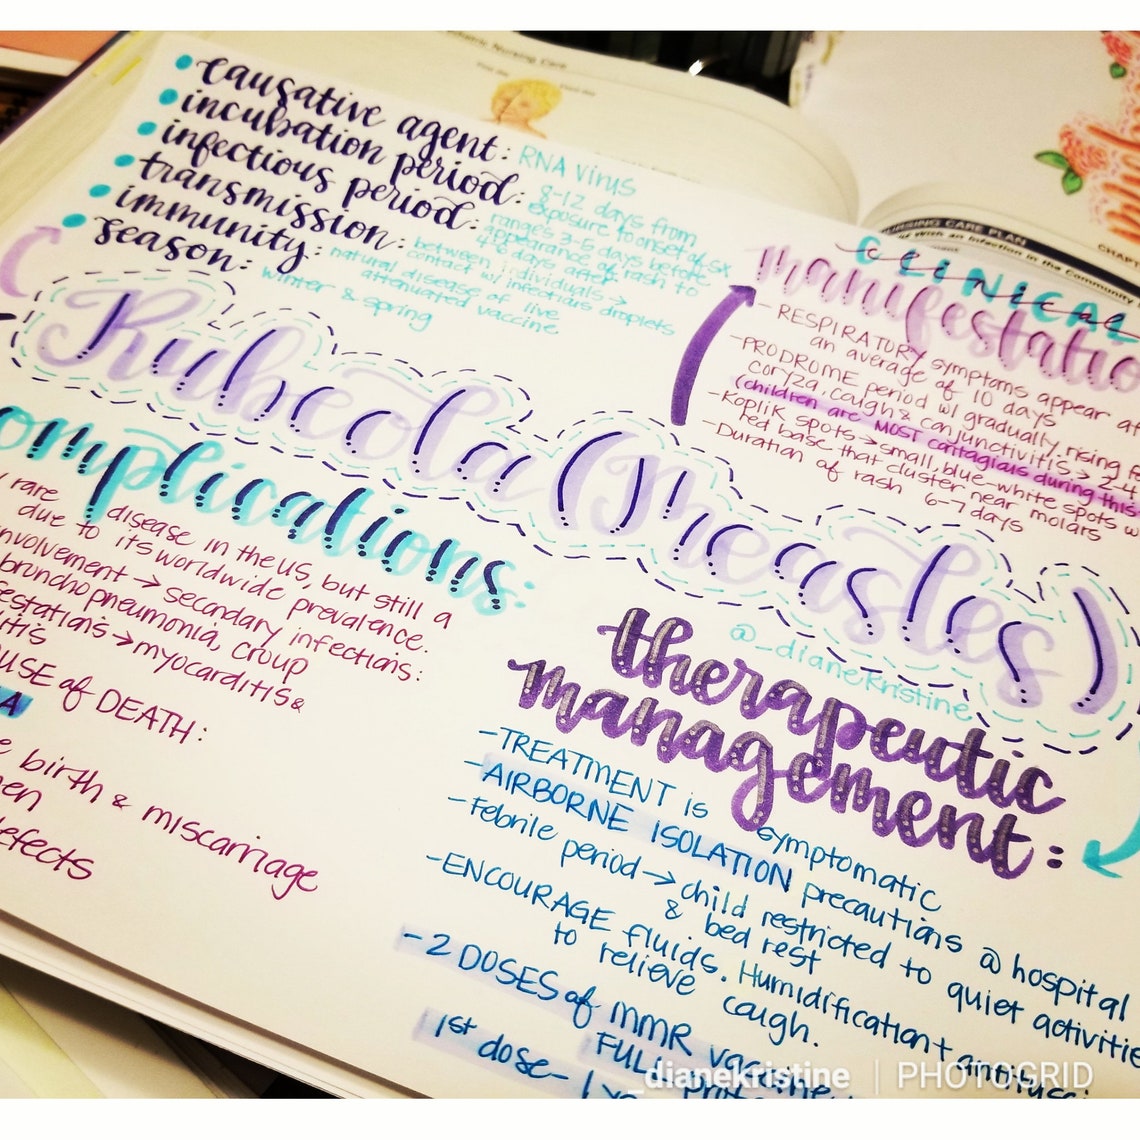 causative agent: RNA virus
incubation period: 8-12 days from
exposure to onset of sx
infectious period: ranges 3-5 days before
appearance of rash to
4-6 days after
transmission: between individuals →
contact w/ infectious droplets
immunity: natural disease of live
attenuated vaccine
season: winter & spring
Rubeola (Measles)
@_dianekristine
CLINICAL
manifestatio
- RESPIRATORY symptoms appear
an average of 10 days
-PRODROME period w/ gradually rising
coryza, cough & conjunctivitis → 2-4
(children are MOST contagious during this
-Koplik spots → small, blue-white spots w
red base that cluster near molars
-Duration of rash 6-7 days
omplications:
rare disease in the US, but still a
due to its worldwide prevalence.
nvolvement → secondary infections:
bronchopneumonia, croup
estations → myocarditis &
itis
USE of DEATH:
A
e birth & miscarriage
men
defects
therapeutic
management:
-TREATMENT is symptomatic
-AIRBORNE ISOLATION precautions @ hospital
-Febrile period → child restricted to quiet activitie
& bed rest
-ENCOURAGE fluids. Humidification + antitussi
to relieve cough.
-2 DOSES of MMR vaccine
FULL
1st dose- 1 y
Nursing Care
NURSING CARE PLAN
an Infection in the Community
CHAPT
_dianekristine | PHOTOGRID